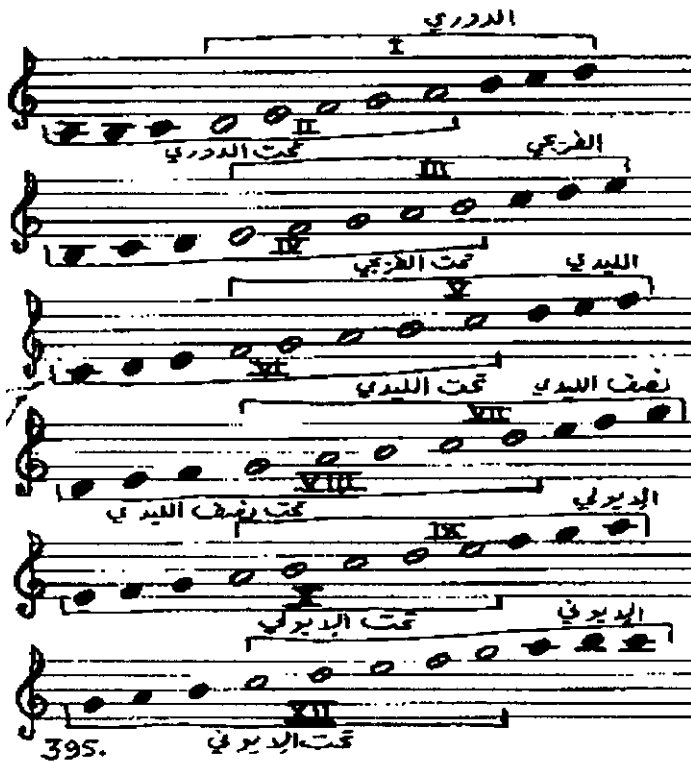 الدوري
I
II
تحت الدوري
الفريجي
III
IV
تحت الفريجي
الليدي
V
VI
تحت الليدي
نصف الليدي
VII
VIII
تحت نصف الليدي
الإيولي
IX
X
تحت الإيولي
الإيوني
XII
تحت الإيوني
395.